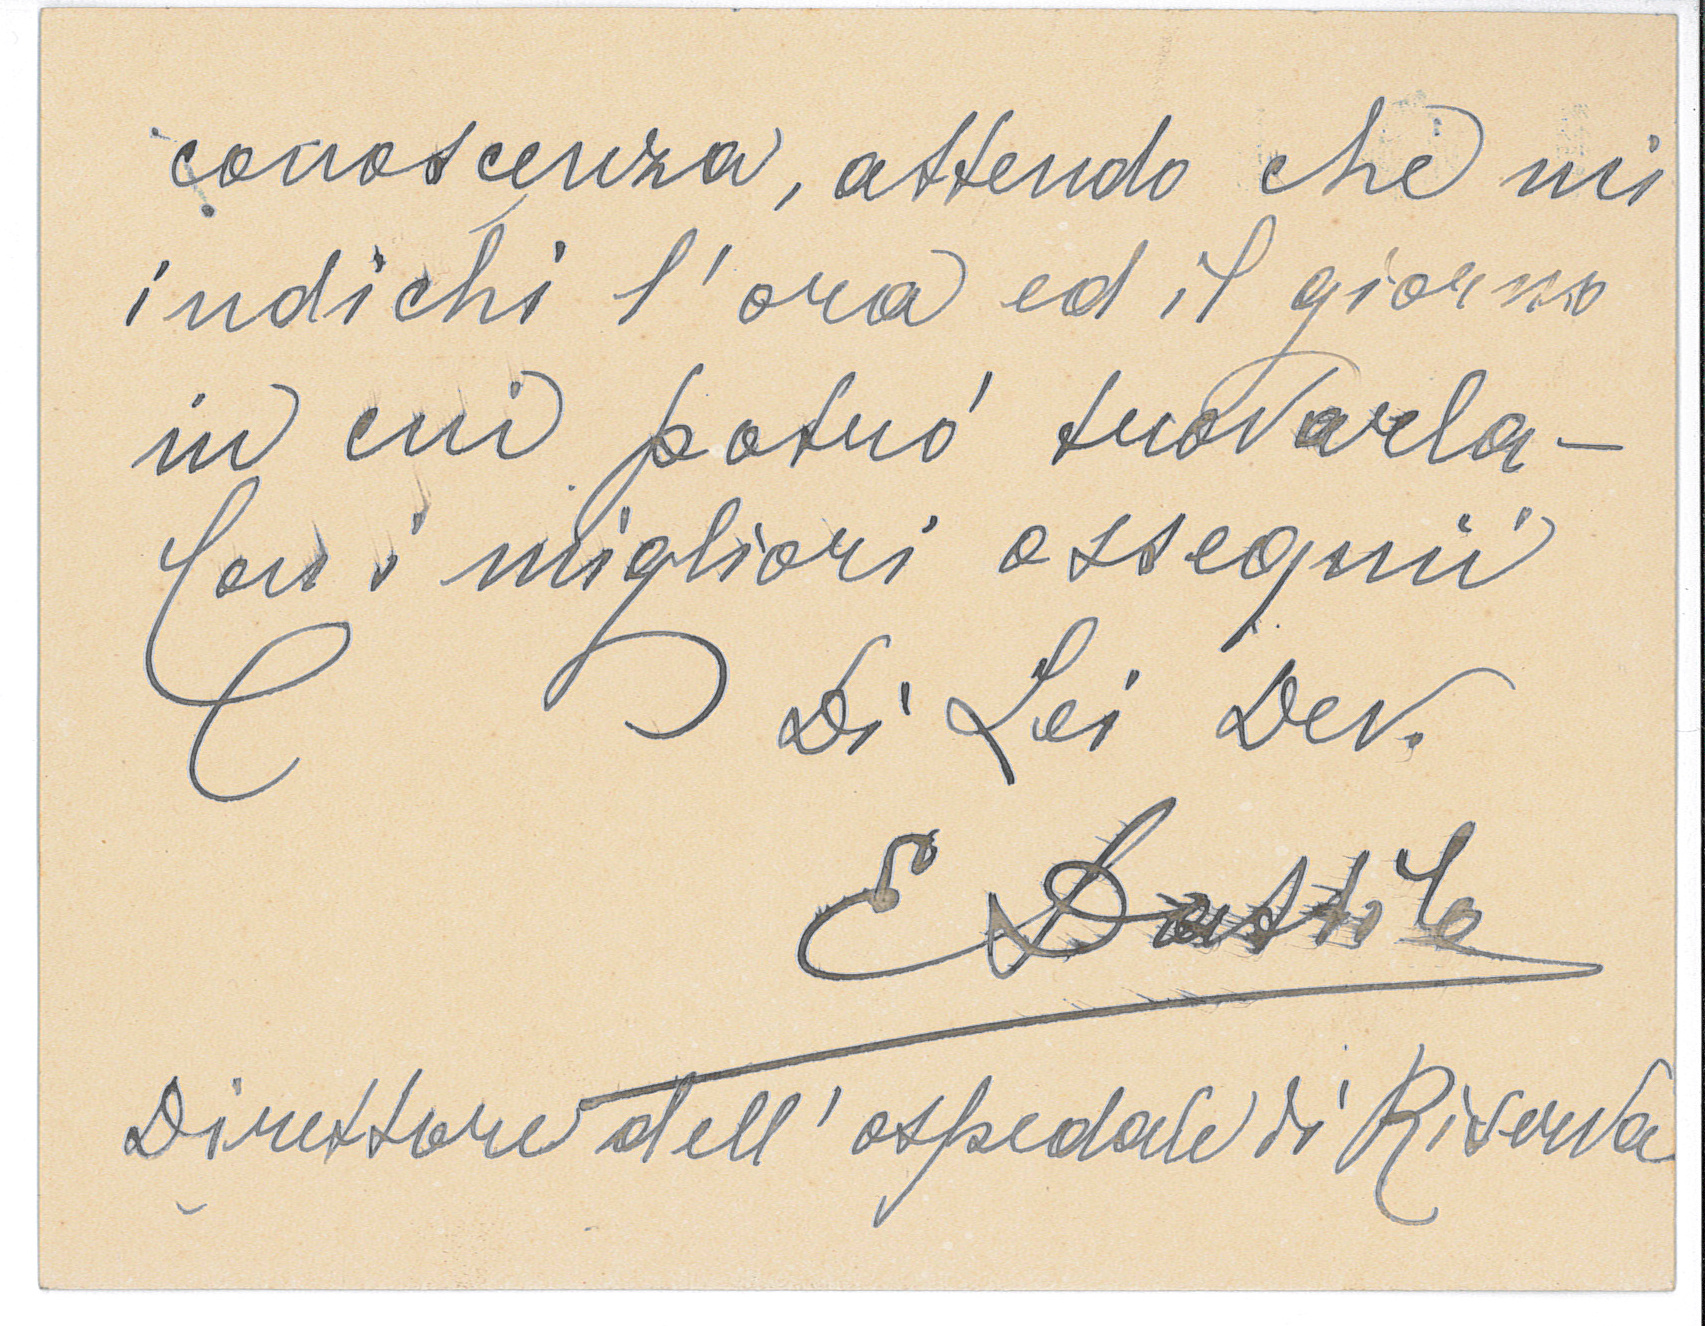 conoscenza, attendo che mi
indichi l'ora ed il giorno
in cui potrò trovarla -
Con i migliori ossequii
Di Lei Dev.
E Dattilo
Direttore dell'ospedale di Riserva